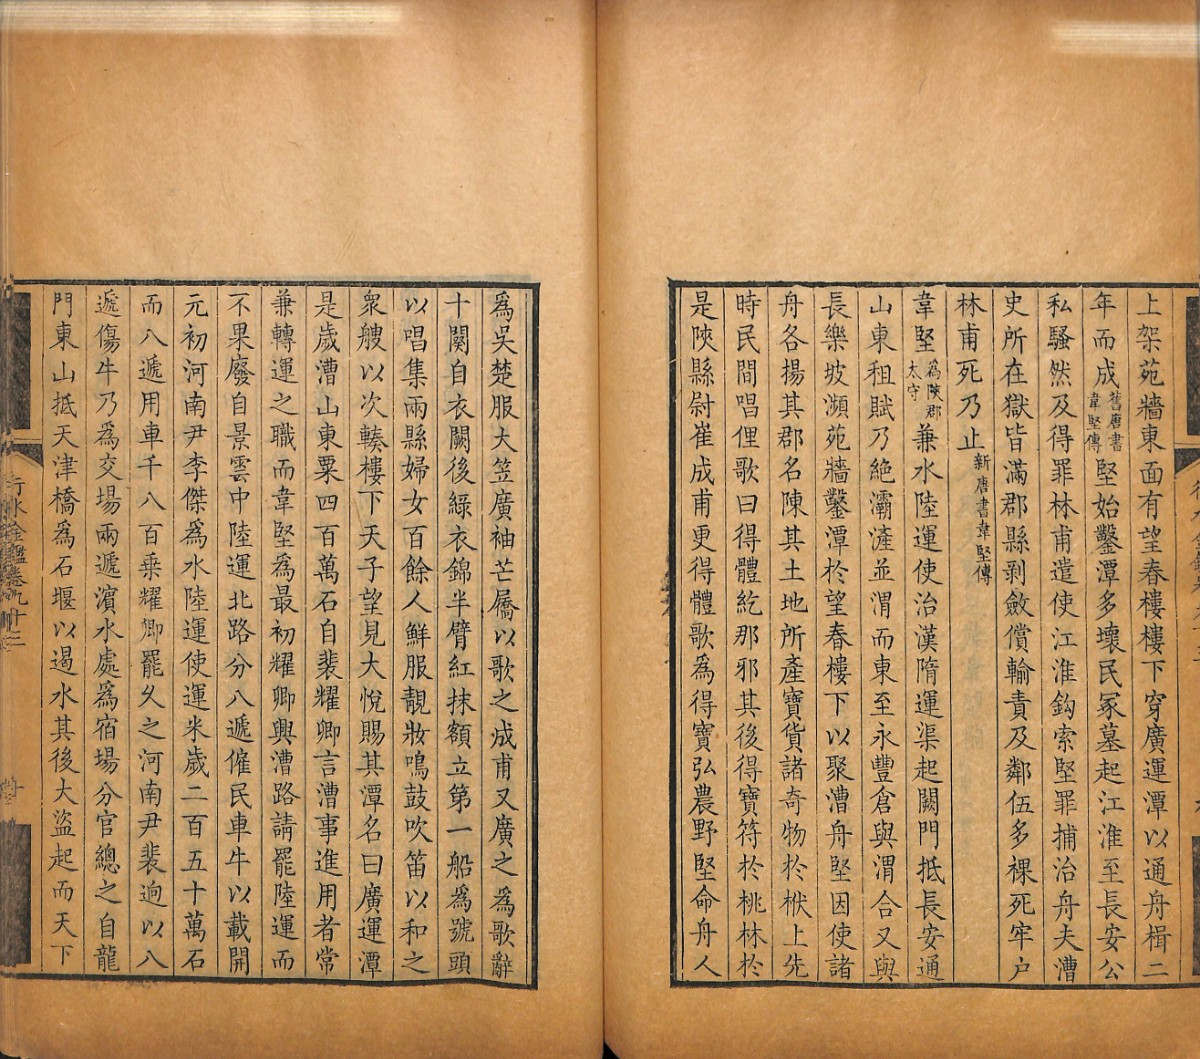 上架苑牆東面有望春樓樓下穿廣運潭以通舟楫二
年而成舊唐書韋堅傳堅始鑿潭多壞民冢墓起江淮至長安公
私騷然及得罪林甫遣使江淮鈎索堅罪捕治舟夫漕
史所在獄皆滿郡縣剥斂償輸責及鄰伍多裸死牢户
林甫死乃止新唐書韋堅傳
韋堅為陝郡太守兼水陸運使治漢隋運渠起關門抵長安通
山東租賦乃絶灞滻並渭而東至永豐倉與渭合又與
長樂坡瀕苑牆鑿潭於望春樓下以聚漕舟堅因使諸
舟各揚其郡名陳其土地所產寶貨諸奇物於栿上先
時民間唱俚歌曰得體紇那邪其後得寶符於桃林於
是陝縣尉崔成甫更得體歌爲得寶弘農野堅命舟人
爲吳楚服大笠廣袖芒屩以歌之成甫又廣之爲歌辭
十闋自衣闕後緑衣錦半臂紅抹額立第一船爲號頭
以唱集兩縣婦女百餘人鮮服靚妝鳴鼓吹笛以和之
衆艘以次輳樓下天子望見大悦賜其潭名曰廣運潭
是歲漕山東粟四百萬石自裴耀卿言漕事進用者常
兼轉運之職而韋堅爲最初耀卿興漕路請罷陸運而
不果廢自景雲中陸運北路分八遞僱民車牛以載開
元初河南尹李傑爲水陸運使運米歲二百五十萬石
而八遞用車千八百乗耀卿罷久之河南尹裴逈以八
遞傷牛乃爲交場兩遞濱水處爲宿場分官總之自龍
門東山抵天津橋爲石堰以遏水其後大盜起而天下
行水金鑑卷九十二